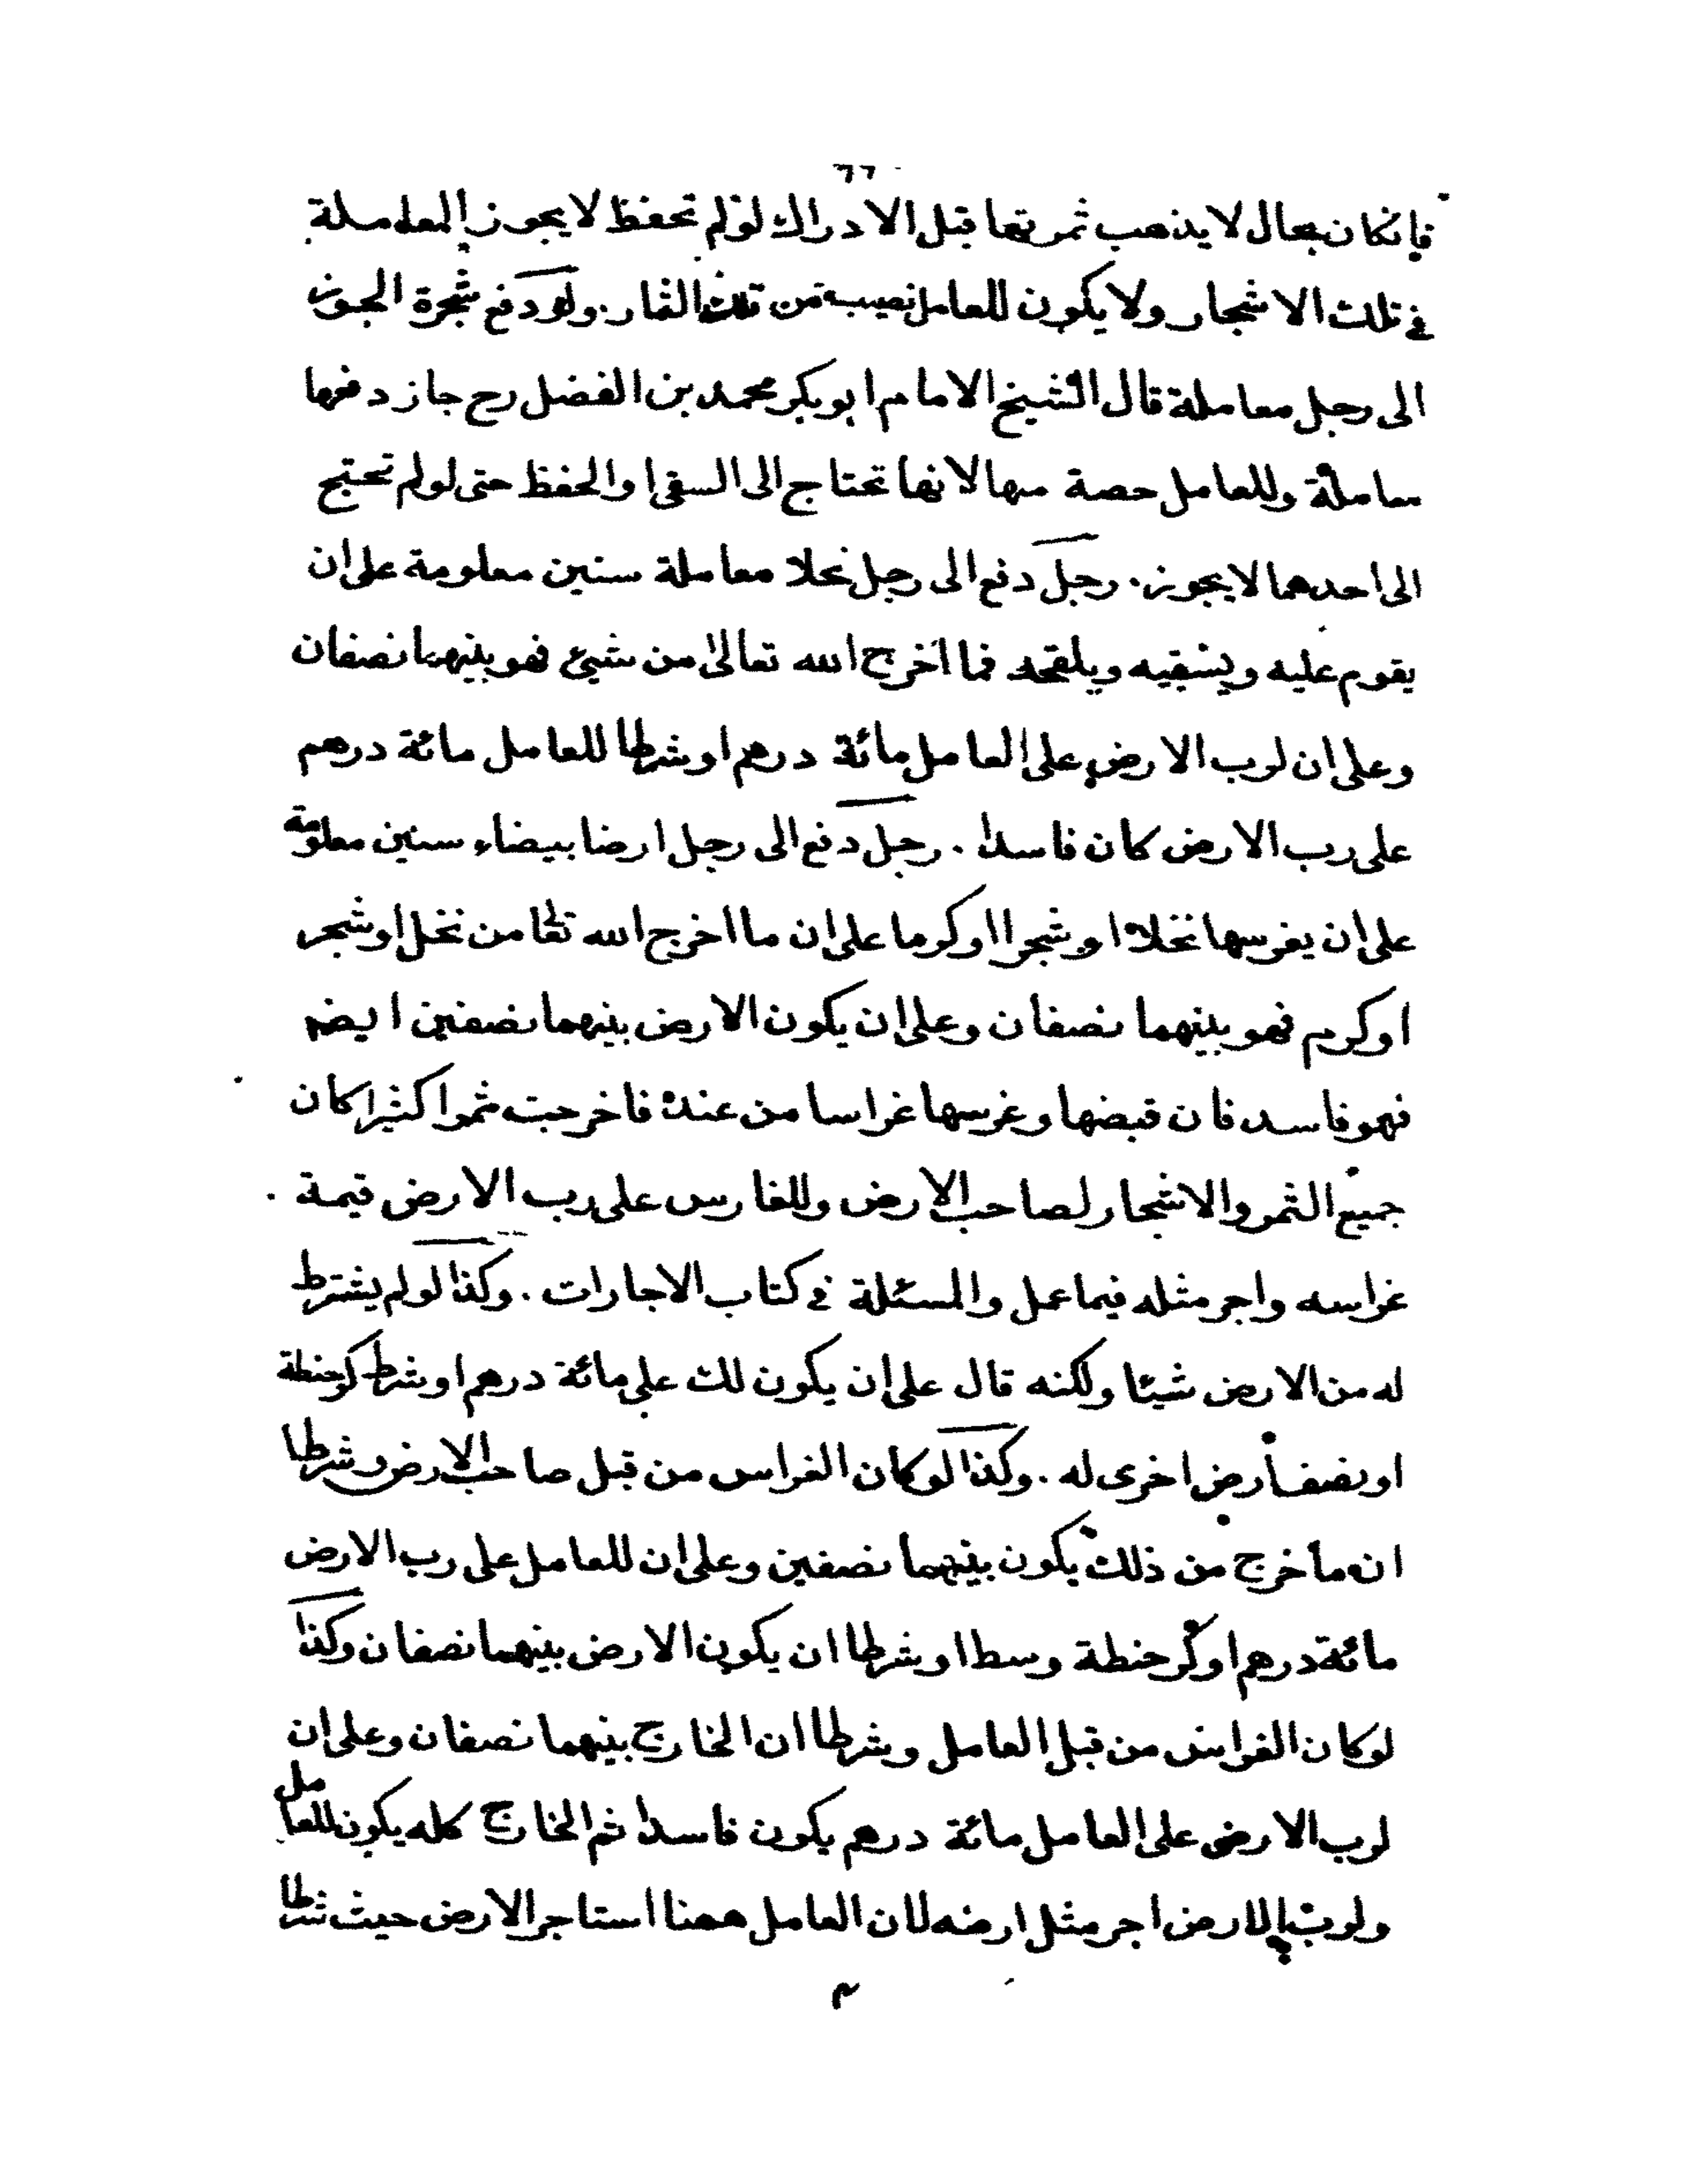 ٦٦
فانكان بحال لا يذهب ثمرتها قبل الادراك لولم تحفظ لا يجوز المعاملة
في تلك الاشجار ولا يكون للعامل نصيب من تلك الثمار . ولو دفع شجرة الجوز
الى رجل معاملة قال الشيخ الامام ابو بكر محمد بن الفضل رح جاز دفعها
معاملة وللعامل حصة منها لانها تحتاج الى السقي او الحفظ حتى لو لم تحتج
الى احدهما لا يجوز . رجل دفع الى رجل نخلا معاملة سنين معلومة على ان
يقوم عليه ويسقيه ويلقحه فما اخرج الله تعالى من شيئ فهو بينهما نصفان
وعلى ان لرب الارض على العامل مائة درهم او شرطا للعامل مائة درهم
على رب الارض كان فاسدا . رجل دفع الى رجل ارضا بيضاء سنين معلومة
على ان يغرسها نخلا او شجرا او كرما على ان ما اخرج الله تعا من نخل او شجر
او كرم فهو بينهما نصفان وعلى ان يكون الارض بينهما نصفين ايضم
فهو فاسد فان قبضها وغرسها غراسا من عنده فاخرجت ثمرا كثيرا كان
جميع الثمر والاشجار لصاحب الارض وللغارس على رب الارض قيمة
غراسه واجر مثله فيما عمل والمسئلة في كتاب الاجارات . وكذا لو لم يشترط
له من الارض شيئا ولكنه قال على ان يكون لك علي مائة درهم او شرط كر حنطة
او نصف ارض اخرى له . وكذا لو كان الغراس من قبل صاحب الارض وشرطا
ان ما خرج من ذلك يكون بينهما نصفين وعلى ان للعامل على رب الارض
مائة درهم او كر حنطة وسط او شرطا ان يكون الارض بينهما نصفان وكذا
لو كان الغراس من قبل العامل وشرطا ان الخارج بينهما نصفان وعلى ان
لرب الارض على العامل مائة درهم يكون فاسدا ثم الخارج كله يكون للعامل
ولرب الارض اجر مثل ارضه لان العامل ههنا استاجر الارض حيث شرطا